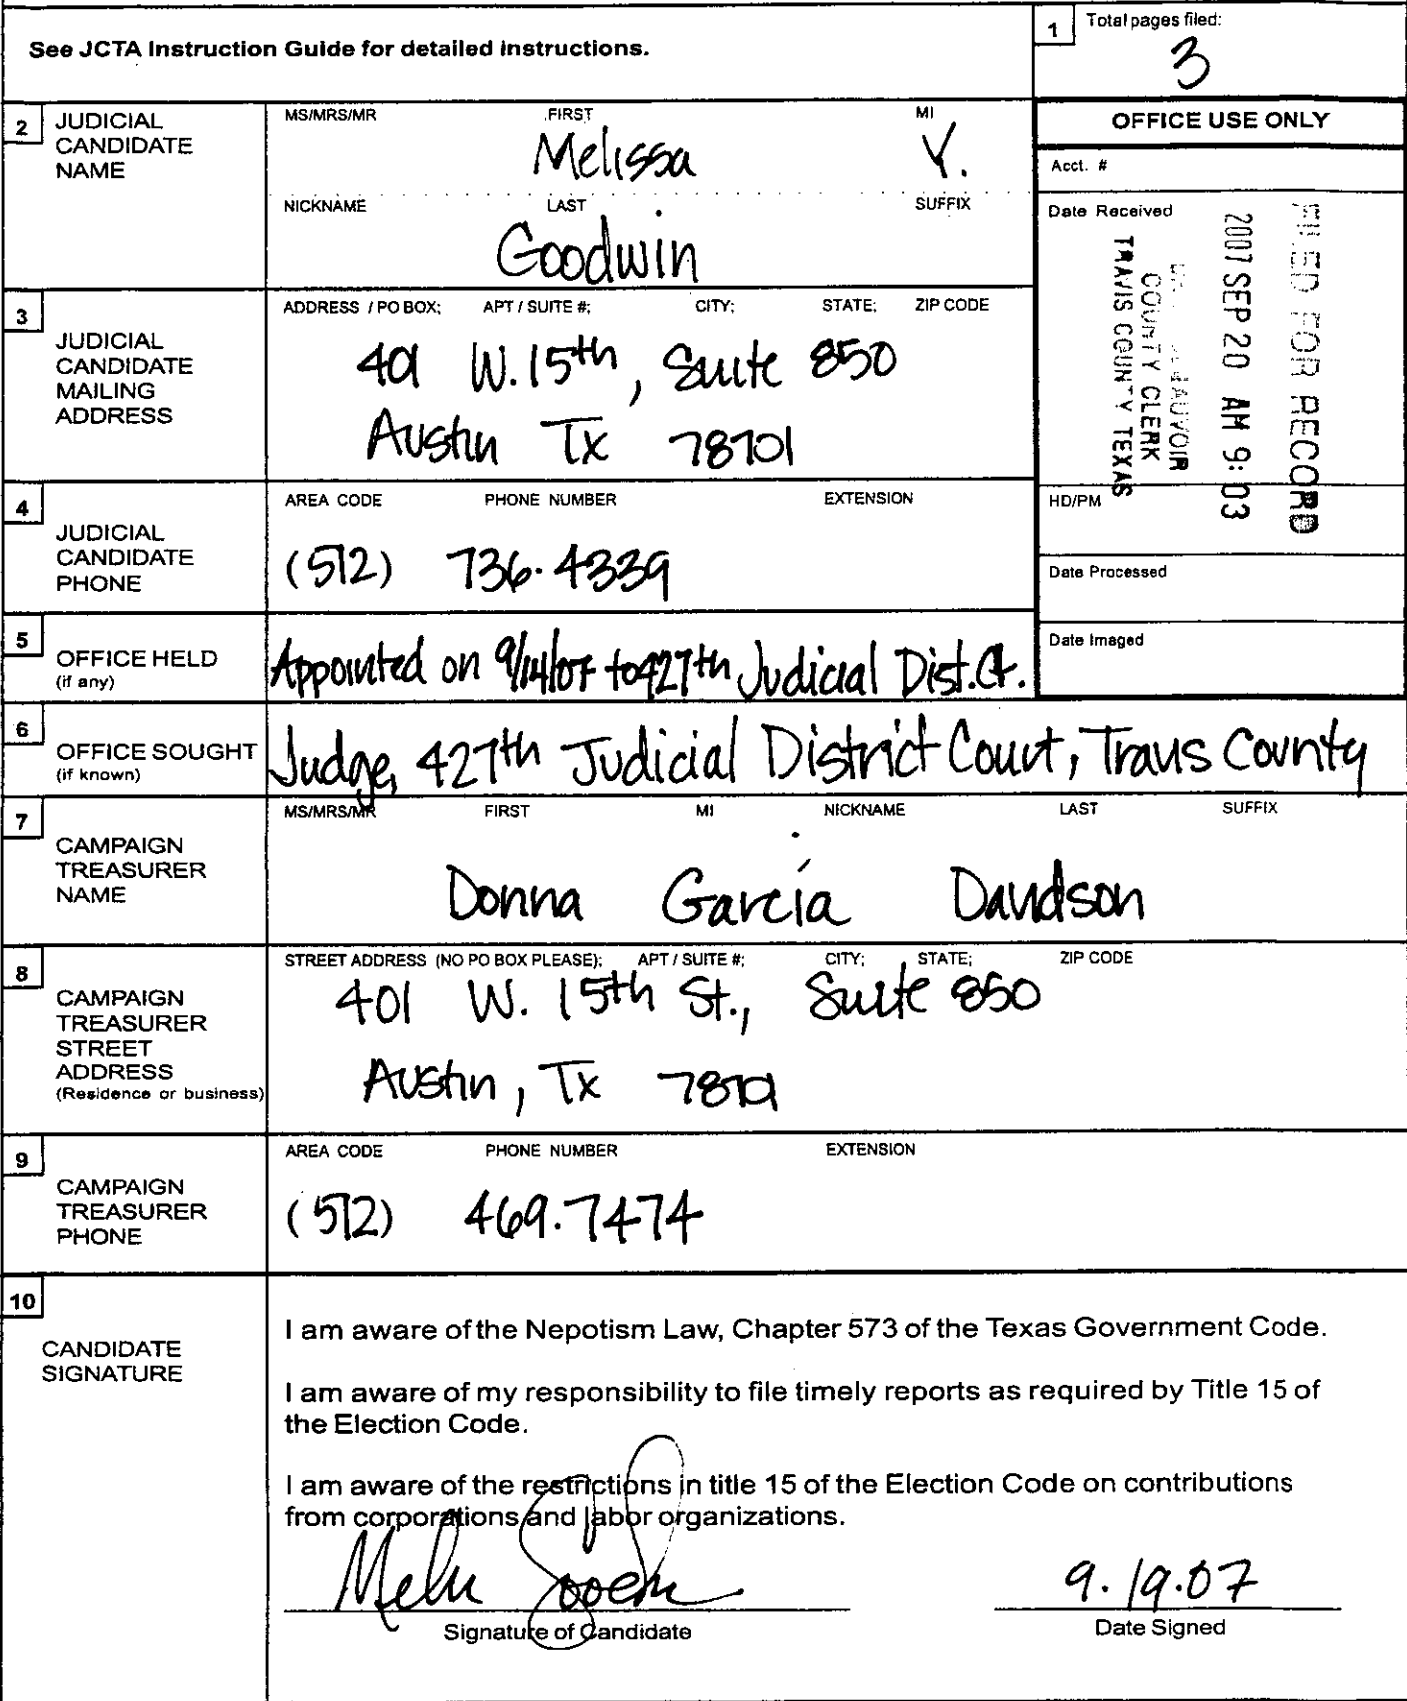 See JCTA Instruction Guide for detailed instructions.
1 Total pages filed:
3
2 JUDICIAL CANDIDATE NAME
MS/MRS/MR FIRST MI
Melissa Y.
NICKNAME LAST SUFFIX
Goodwin
OFFICE USE ONLY
Acct. #
Date Received
FILED FOR RECORD
2007 SEP 20 AM 9:03
COUNTY CLERK
TRAVIS COUNTY TEXAS
HD/PM
Date Processed
Date Imaged
3 JUDICIAL CANDIDATE MAILING ADDRESS
ADDRESS / PO BOX; APT / SUITE #; CITY; STATE; ZIP CODE
401 W. 15th, Suite 850
Austin Tx 78701
4 JUDICIAL CANDIDATE PHONE
AREA CODE PHONE NUMBER EXTENSION
(512) 736-4339
5 OFFICE HELD (if any)
Appointed on 9/14/07 to 427th Judicial Dist. Ct.
6 OFFICE SOUGHT (if known)
Judge, 427th Judicial District Court, Travis County
7 CAMPAIGN TREASURER NAME
MS/MRS/MR FIRST MI NICKNAME LAST SUFFIX
Donna García Davidson
8 CAMPAIGN TREASURER STREET ADDRESS (Residence or business)
STREET ADDRESS (NO PO BOX PLEASE); APT / SUITE #; CITY; STATE; ZIP CODE
401 W. 15th St., Suite 850
Austin, Tx 78701
9 CAMPAIGN TREASURER PHONE
AREA CODE PHONE NUMBER EXTENSION
(512) 469.7474
10 CANDIDATE SIGNATURE
I am aware of the Nepotism Law, Chapter 573 of the Texas Government Code.
I am aware of my responsibility to file timely reports as required by Title 15 of
the Election Code.
I am aware of the restrictions in title 15 of the Election Code on contributions
from corporations and labor organizations.
9.19.07
Signature of Candidate Date Signed